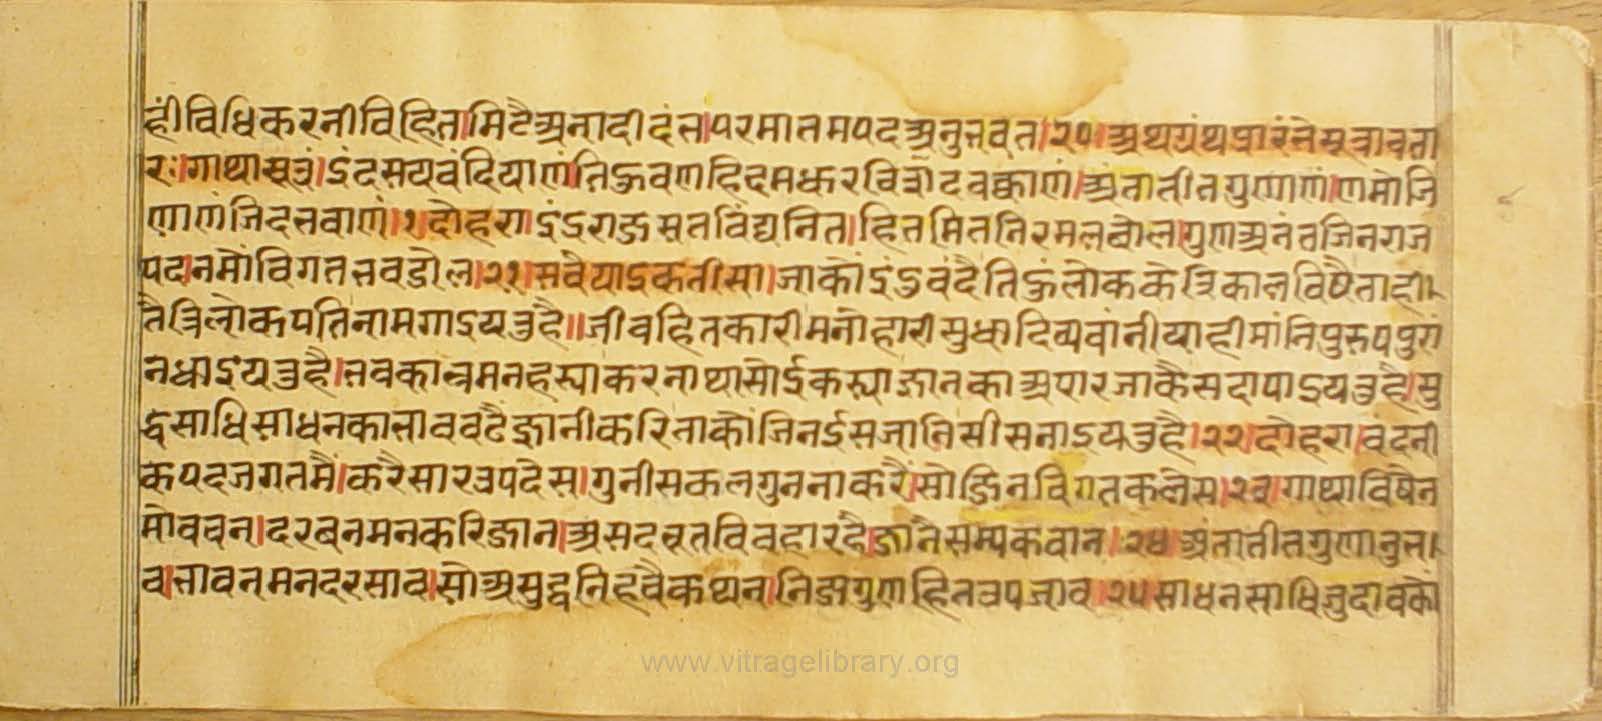 हीं विधि करनी विहित।मिटै अनादी दंल।परमातम पद अनुभवत।२०।अथ ग्रंथ प्रारंभे सूत्रावता
रः।गाथा सूत्रं।इंदसयवंदियाणंतिहुवणहिदमधुरविसदवक्काणं।अंतातीतगुणाणं।णमो जि
णाणं जिदभवाणं।१।दोहरा।इंद्र राज सत वंद्य नित।हित मित निरमल बोल।गुण अनंत जिनराज
पद।नमौं विगत भव डोल।२१।सवैया इकतीसा।जाकों इंद्र वंदै तिहुं लोक के त्रिकाल विषै ताही।
तै त्रिलोकपति नाम गाइयतु है॥जीव हितकारी मनोहारी सुधा दिव्य वांनी याही मांनि पुरुष पुरां
न धाइयतु है।भव का भ्रमन हस्या करना था सोई कस्या ज्ञान का अपार जाकै सदा पाइयतु है।सु
द्ध साधि साधन का भाव बढै ज्ञानी करि ताकों जिन ईस जानि सीस नाइयतु है।२२।दोहरा।वंदनी
क पद जगत मैं।करै सार उपदेस।गुनी सकल गुन नाकरैं।सो जिन विगत कलेस।२३।गाथा विषै न
मो वचन।दरब नमन करि जान।असदभूत विवहार है।जानै सम्यकवान।२४।अंतातीत गुणानुभ।
व।भाव नमन दरसाव।सो असुद्ध निहचै कथन।निज गुण हित उपजाव।२५ साधन साधि जुदाव कों
www.vitragelibrary.org